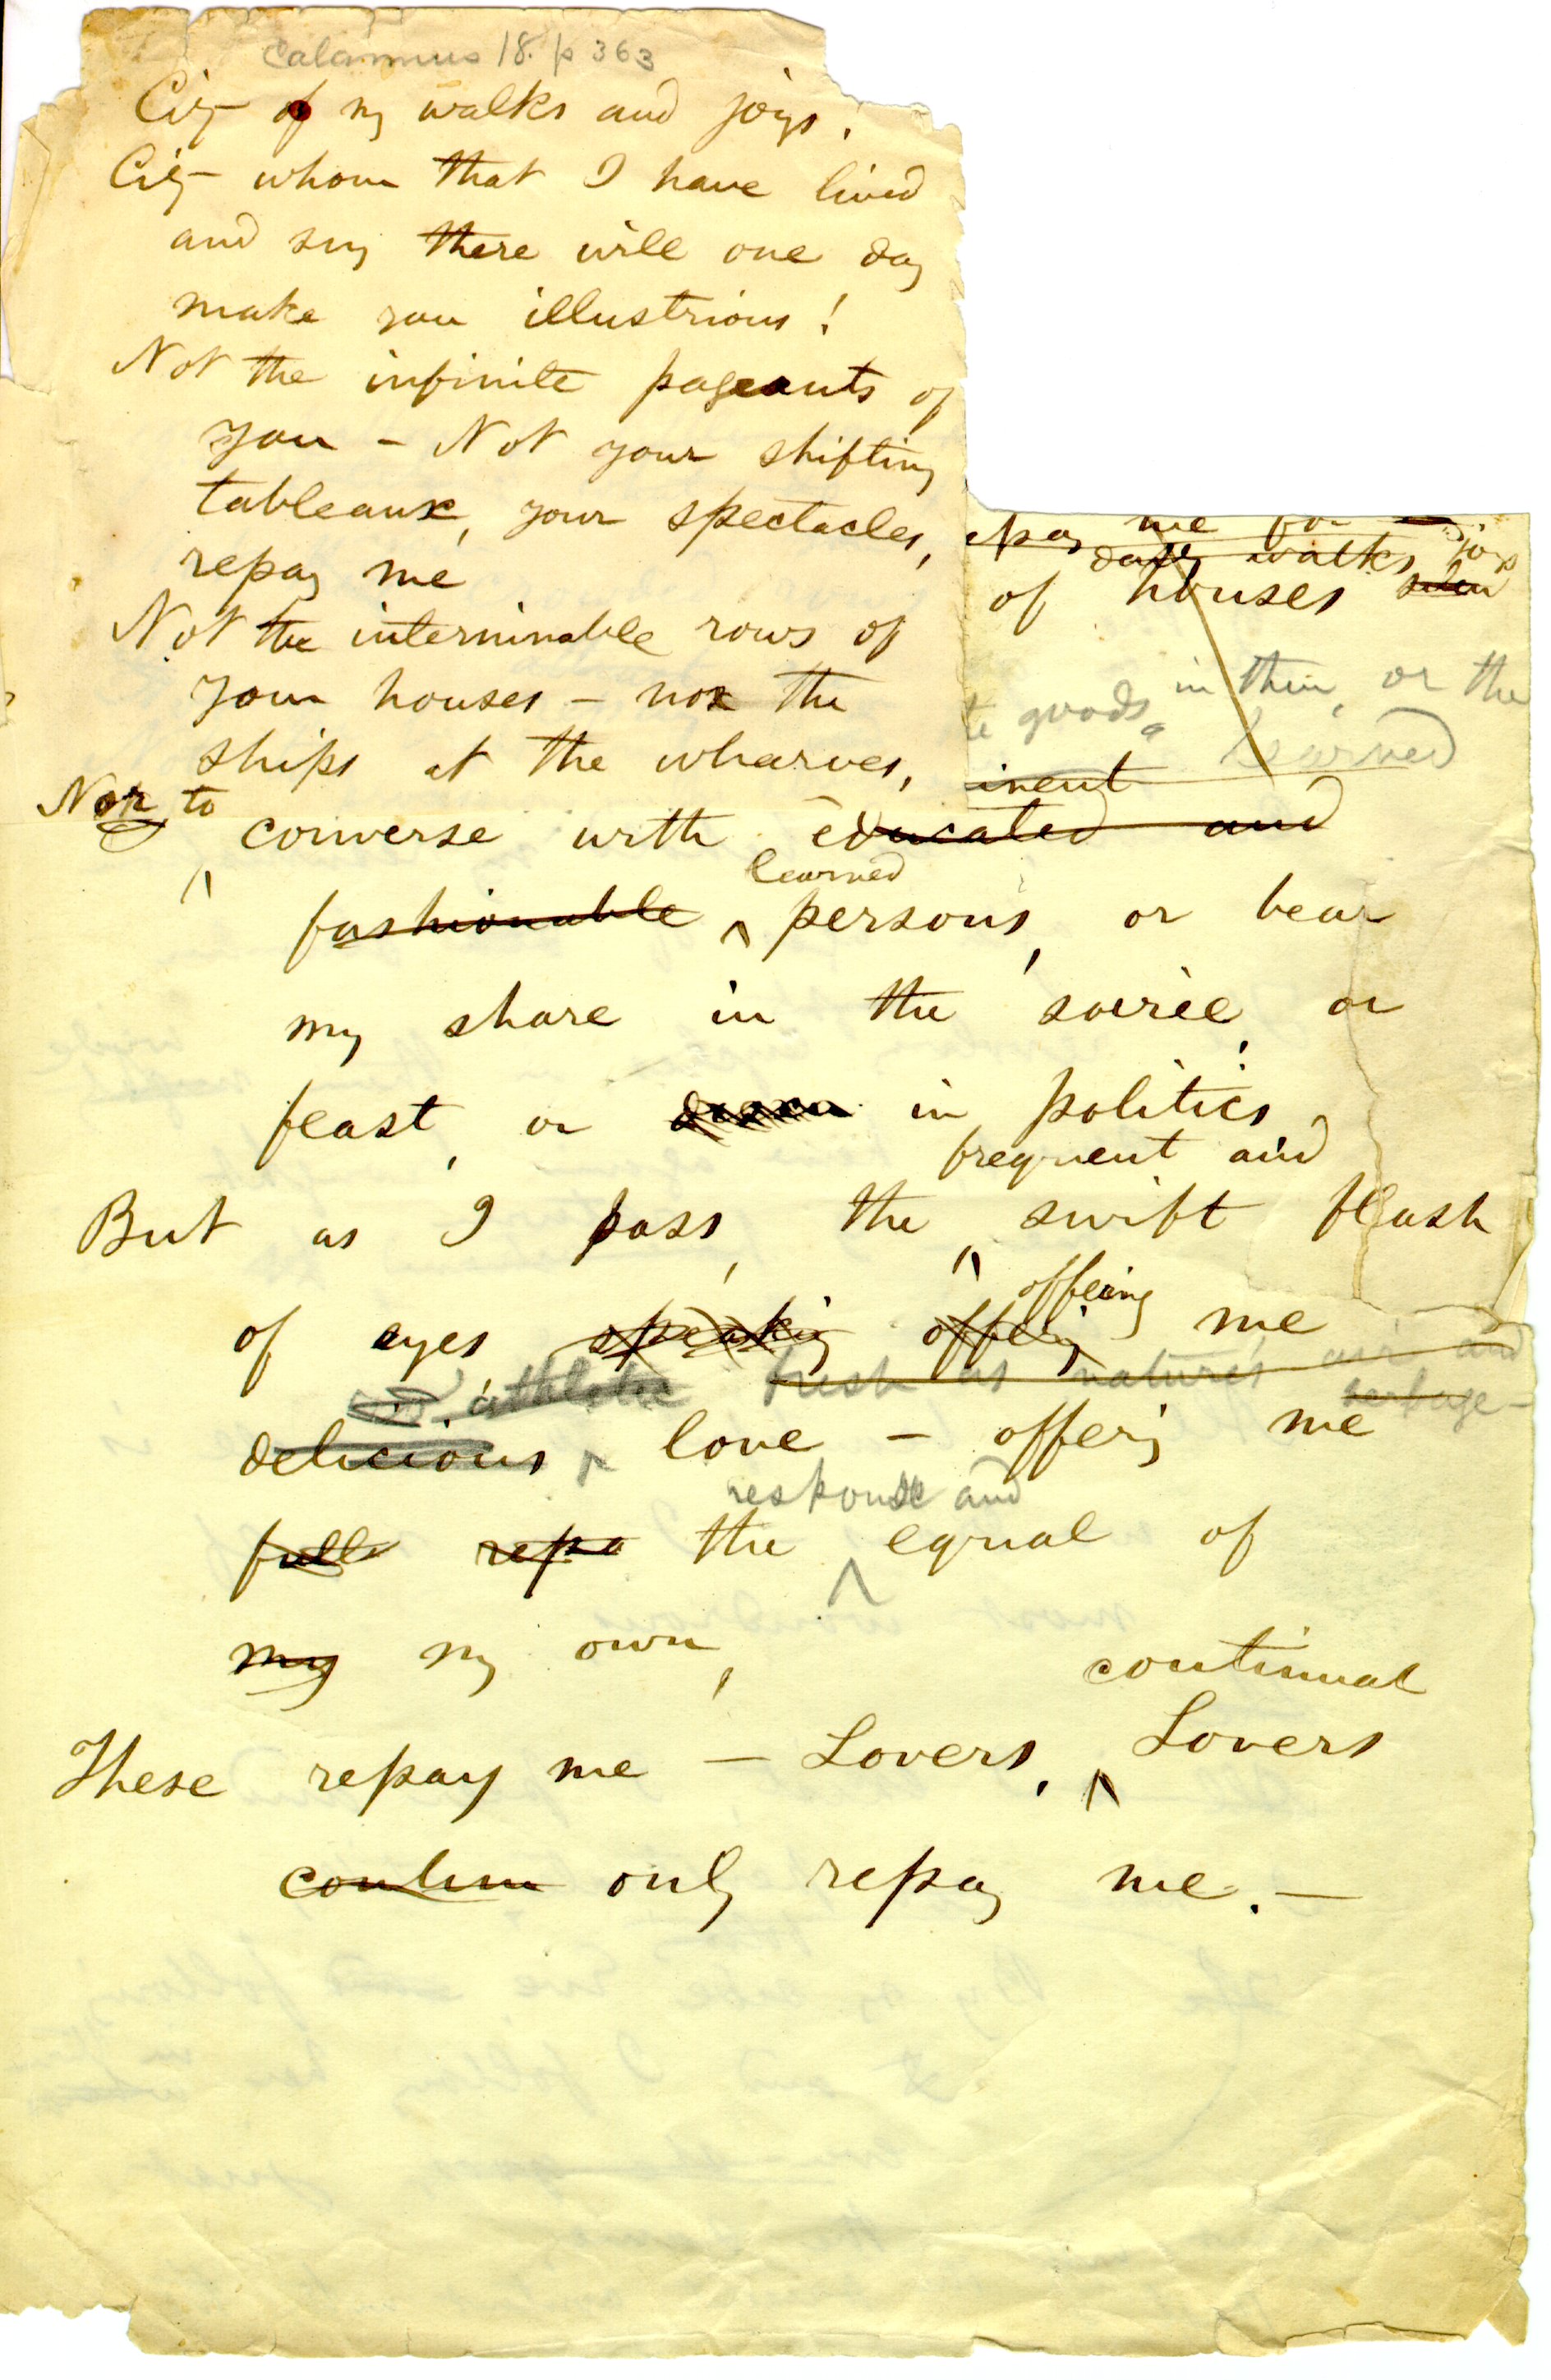 Calamus 18. p 363
City of my walks and joys!
City whom that I have lived
and sung there will one day
make you illustrious!
Not the infinite pageants of
you – Not your shifting
tableaux, your spectacles,
repay me
Not the interminable rows of
your houses – nor the
ships at the wharves,
repay me for
daily walks joys
of houses
goods in them, or the
learned
inent
Nor to
converse with educated and
learned
fashionable persons, or bear
my share in the soirée, or
feast, or in politics
frequent and
But as I pass, the swift flash
offering
of eyes speaking offering me
athletic fresh as nature's air and
herbage
delicious love – offering me
response and
full repa the equal of
my my own,
continual
These repay me – Lovers, Lovers
contin only repay me. –